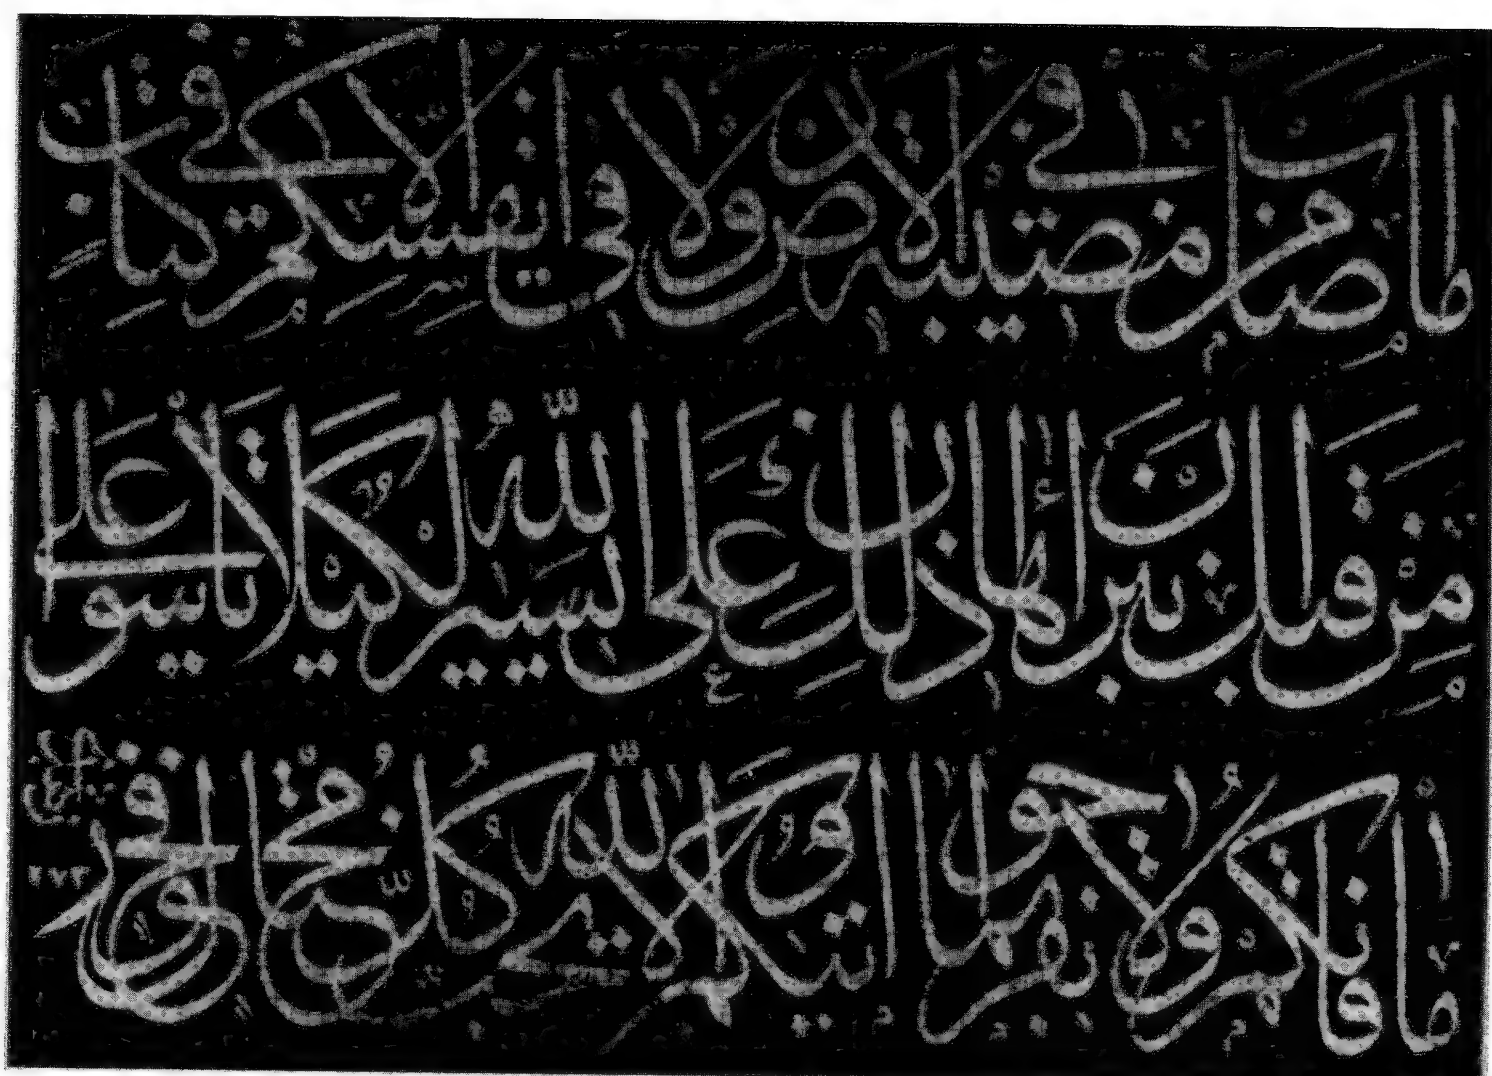 ما أصاب من مصيبة في الأرض ولا في أنفسكم إلا في كتاب
من قبل أن نبرأها إن ذلك على الله يسير لكيلا تأسوا على
ما فاتكم ولا تفرحوا بما آتاكم والله لا يحب كل مختال فخور